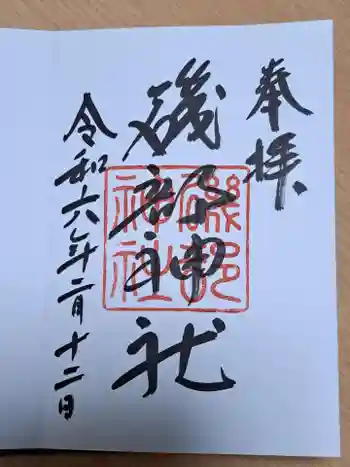 奉拝
磯部神社
磯部
神社
令和六年二月十二日